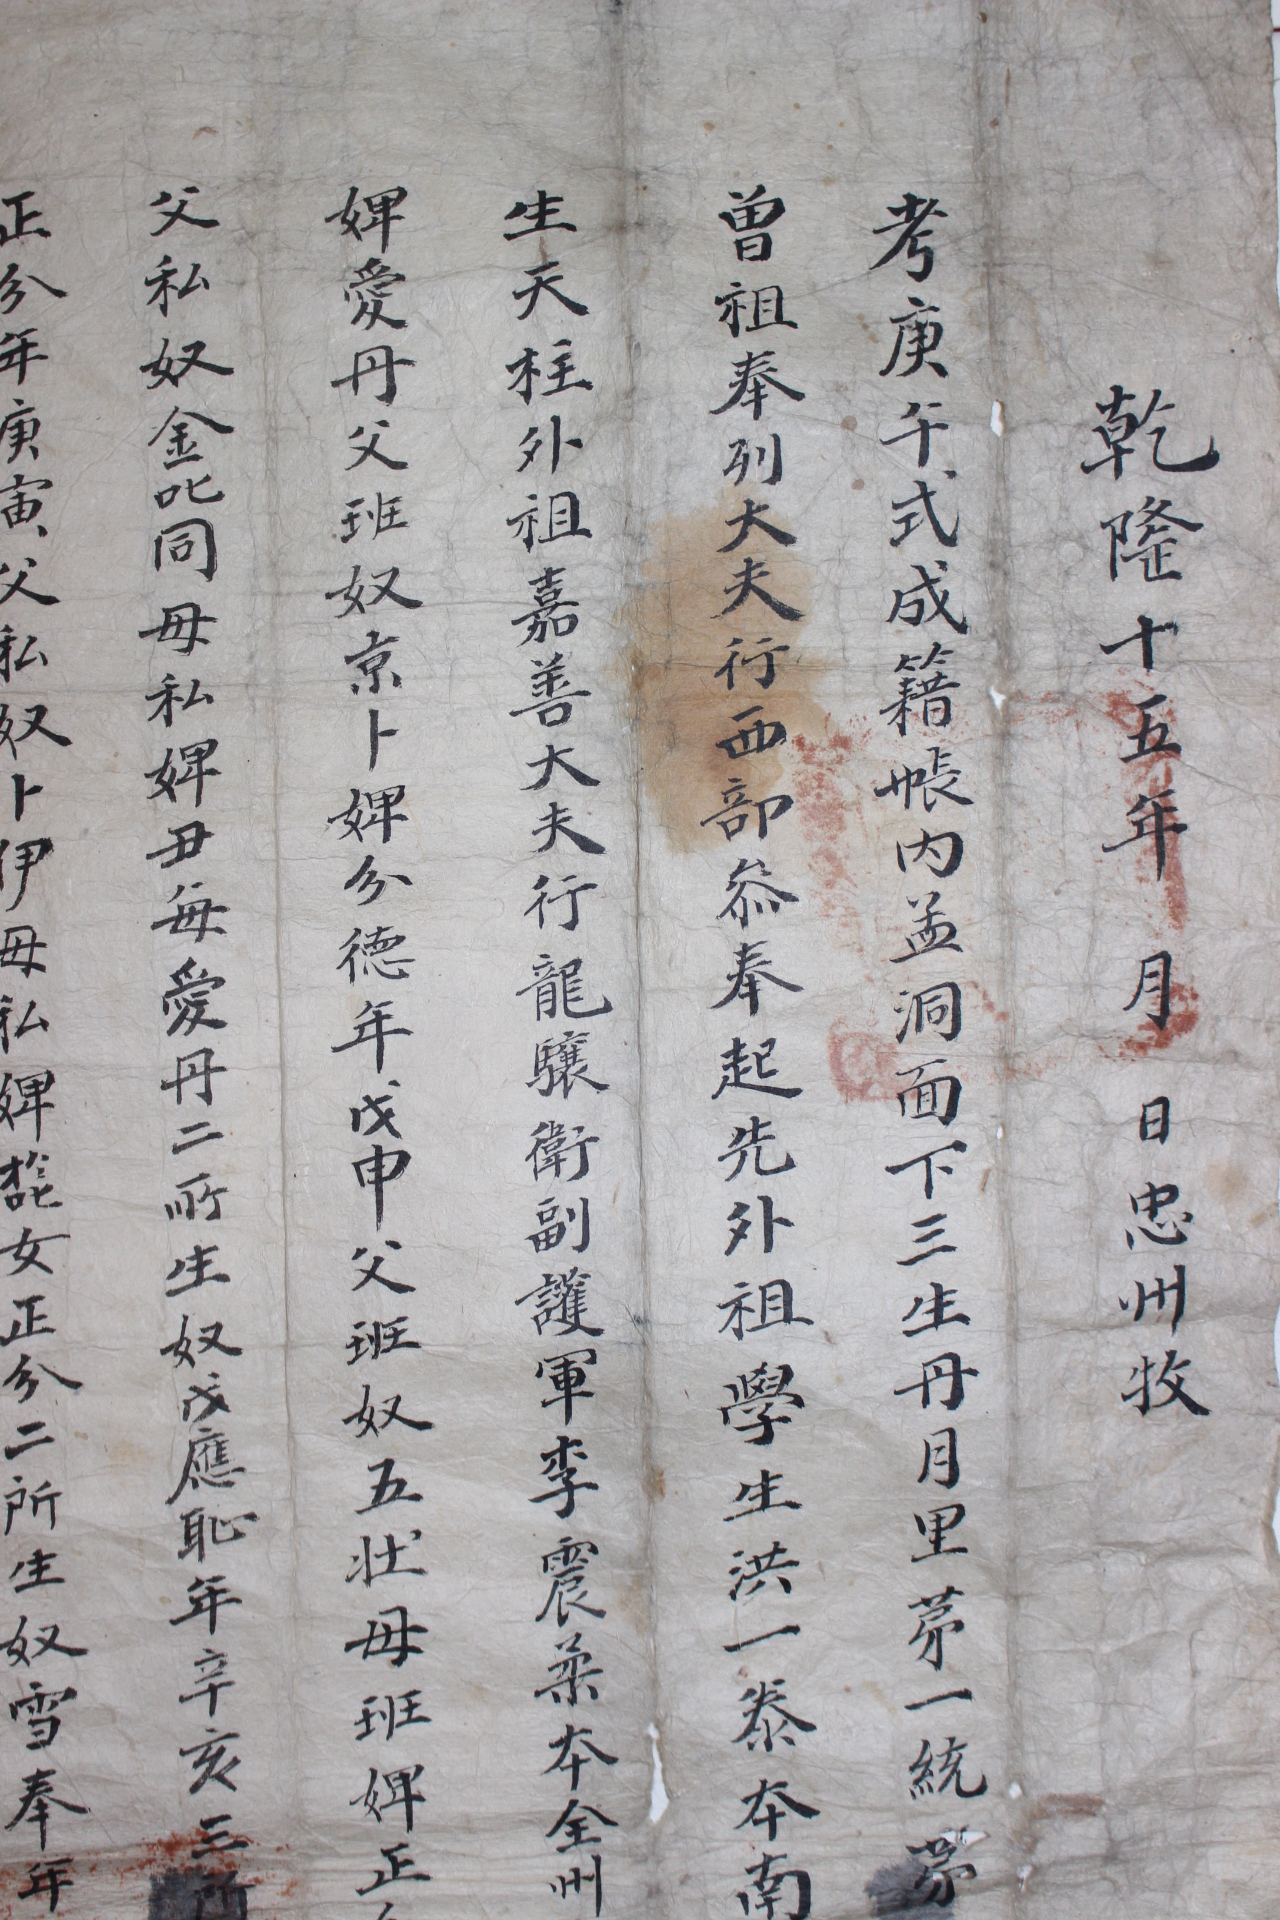 乾隆十五年 月 日忠州牧
考庚午式成籍帳内孟洞面下三生丹月里苐一統苐
曽祖奉列大夫行西部叅奉起先外祖學生洪一泰本南
生天柱外祖嘉善大夫行龍驤衛副護軍李震柔本全州
婢愛丹父班奴京卜婢分德年戊申父班奴五壮母班婢正
父私奴金叱同母私婢丑每愛丹二所生奴戊應耻年辛亥三所
正分年庚寅父私奴卜伊母私婢女正分二所生奴雪奉年